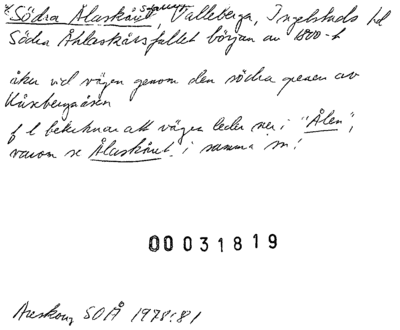 Södra Ålaskåret, Valleberga, Ingelstads hd
Södra Åhlaskårsfallet början av 1800-t
åker vid vägen genom den södra grenen av
Kåsebergaåsen
f l betecknar att vägen leder ner i "Ålen",
varom se Ålaskåret i samma sn!
00031819
Areskoug SOÅ 1978:81